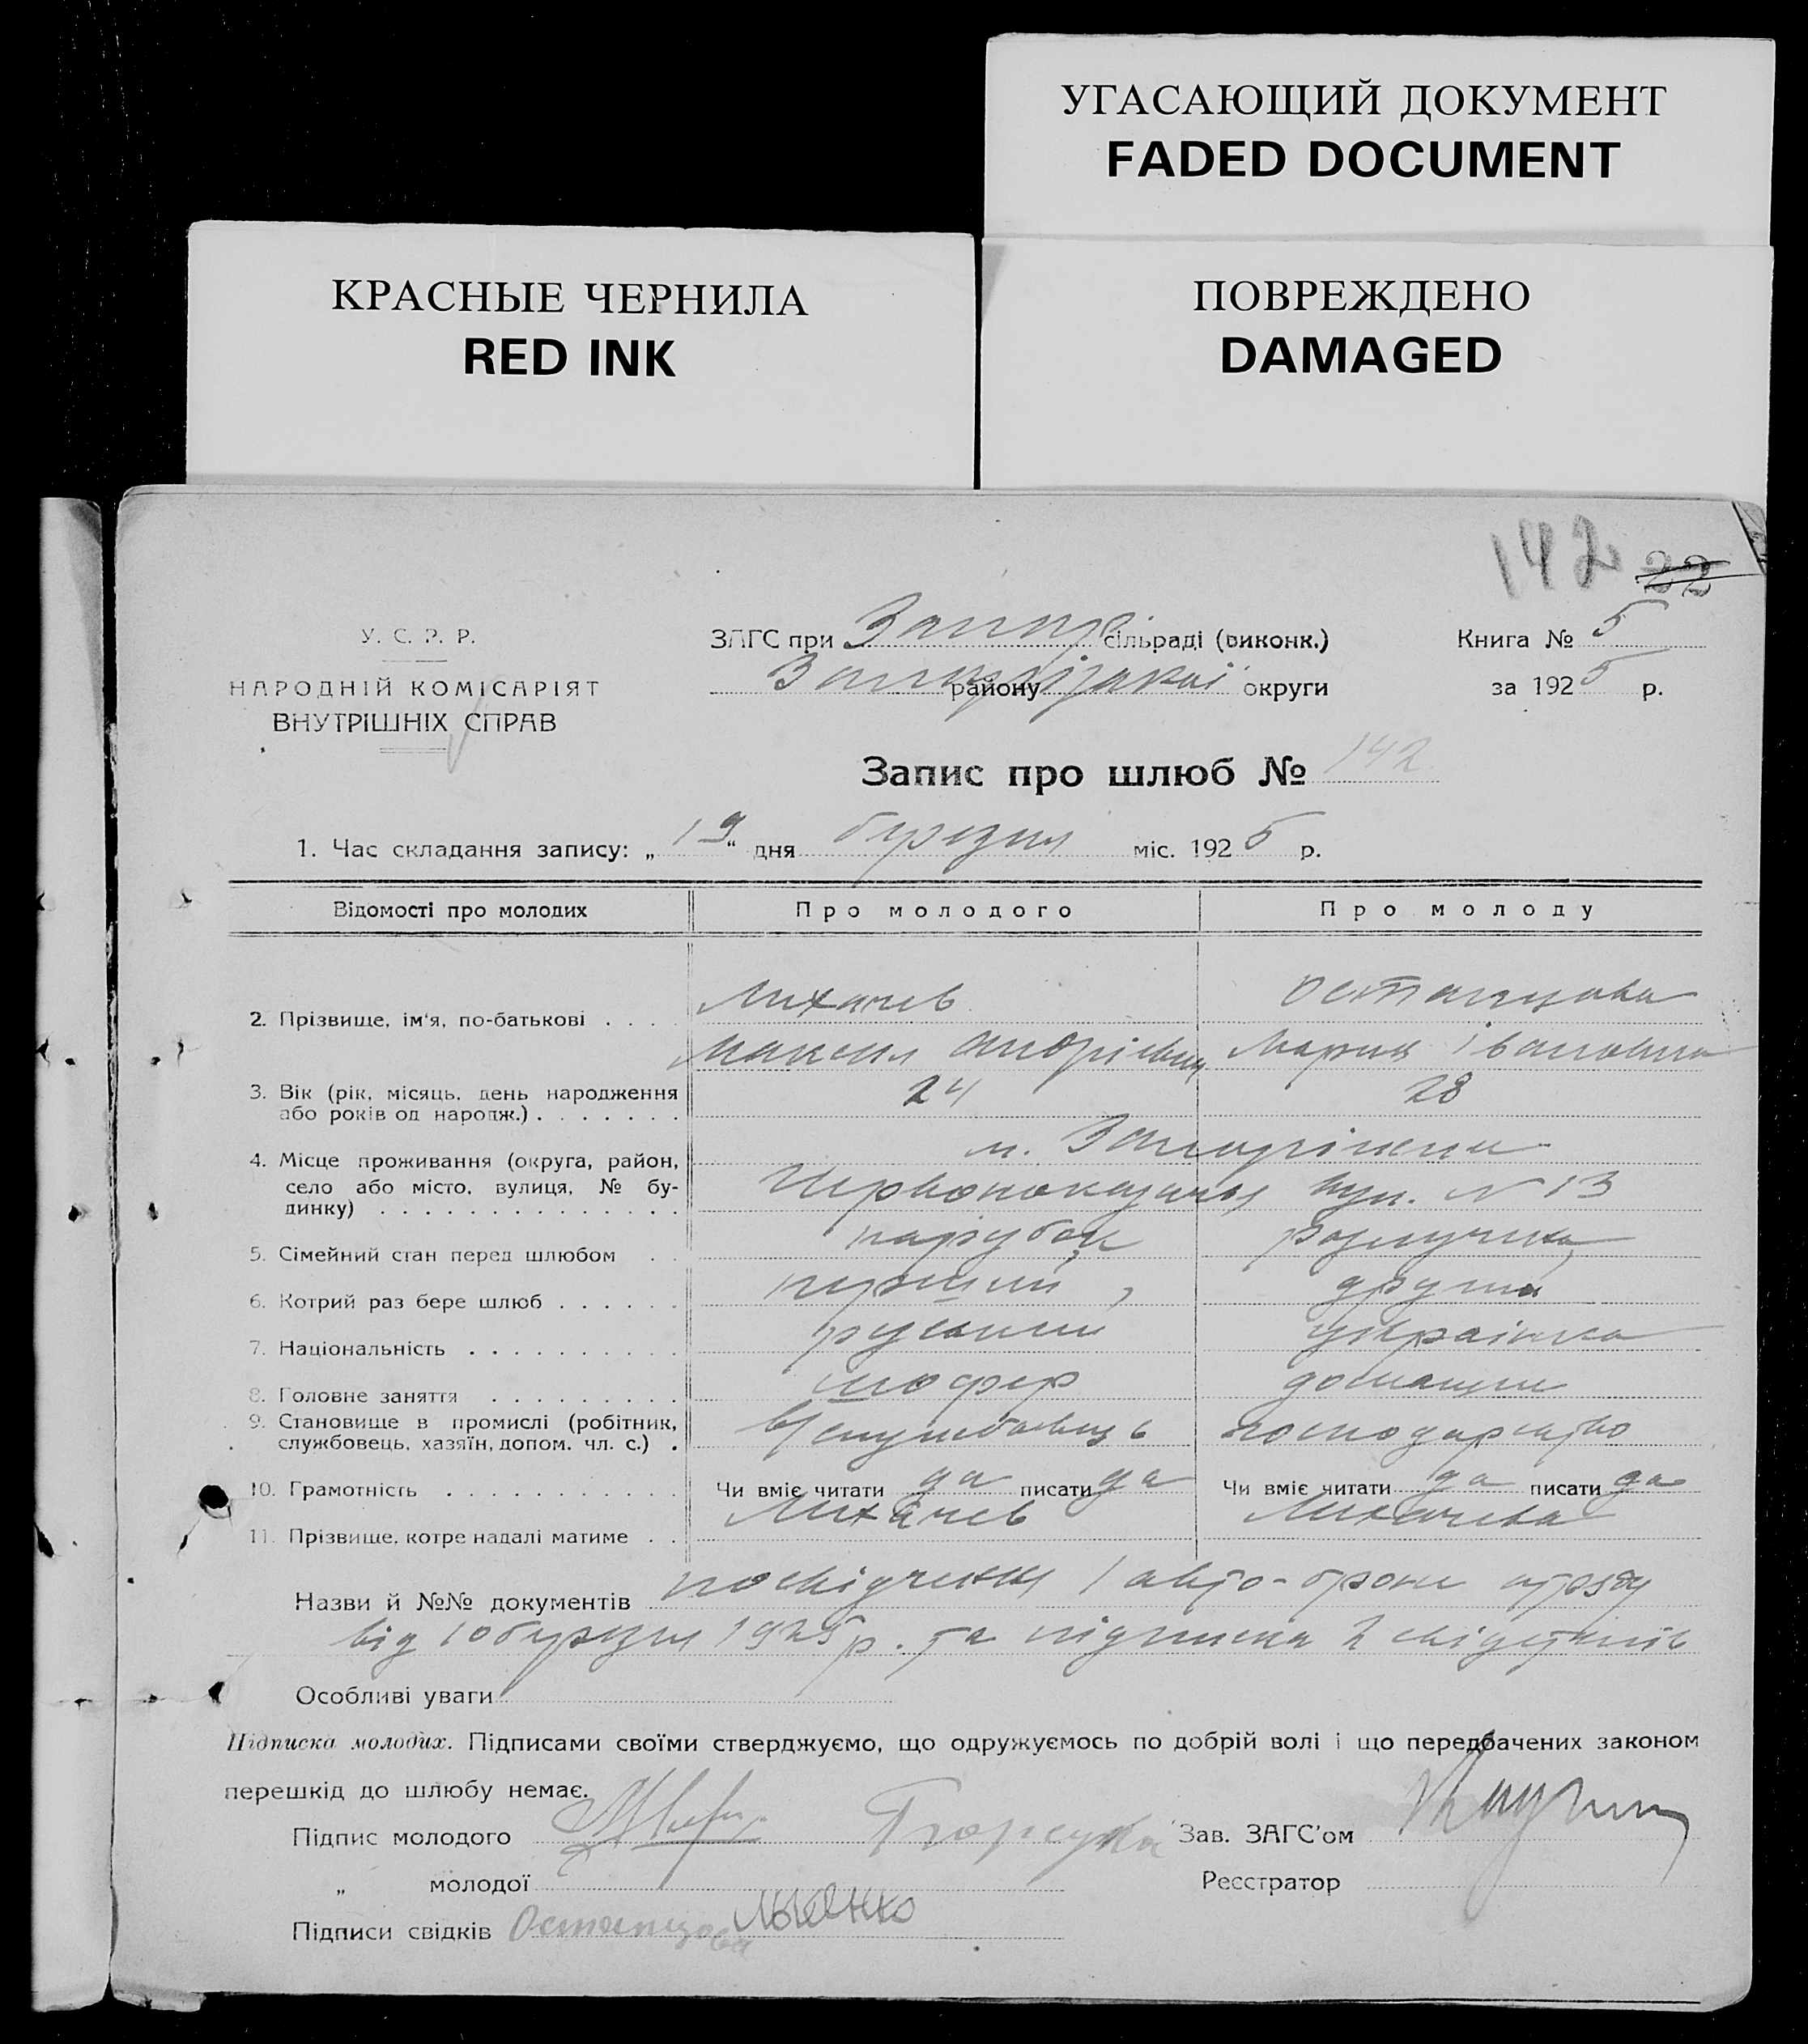 УГАСАЮЩИЙ ДОКУМЕНТ
FADED DOCUMENT
КРАСНЫЕ ЧЕРНИЛА
RED INK
ПОВРЕЖДЕНО
DAMAGED
142 22
У. С. Р. Р.
НАРОДНІЙ КОМІСАРІЯТ
ВНУТРІШНІХ СПРАВ
ЗАГС при Запор. сільраді (виконк.)
району Запорізької округи
Книга № 5
за 1925 р.
Запис про шлюб № 142
1. Час складання запису: „19“ дня березня міс. 1925 р.
Відомості про молодих Про молодого Про молоду
2. Прізвище, ім'я, по-батькові . . . . Лихачев Остапцова
Максим Андрієвич Мария Івановна
3. Вік (рік, місяць, день народження або років од народж.) . . . . . . . 24 28
4. Місце проживання (округа, район, село або місто, вулиця, № будинку) . . . . . . . . . . . . . . м. Запоріжжя
Червонокозача вул. № 13
5. Сімейний стан перед шлюбом . . парубок розлучена
6. Котрий раз бере шлюб . . . . . . перший, другий
7. Національність . . . . . . . . . . руський українка
8. Головне заняття . . . . . . . . . шофер домашне
9. Становище в промислі (робітник, службовець, хазяїн, допом. чл. с.) . службовець господарство
10. Грамотність . . . . . . . . . . . Чи вміє читати да писати да Чи вміє читати да писати да
11. Прізвище, котре надалі матиме . . Лихачев Лихачева
Назви й №№ документів посвідчення 1 авто-броне
від 10 березня 1925 р. та підписка 2 свідків
Особливі уваги
Підписка молодих. Підписами своїми стверджуємо, що одружуємось по добрій волі і що передбачених законом
перешкід до шлюбу немає.
Підпис молодого Зав. ЗАГС'ом
„ молодої Реєстратор
Підписи свідків Остапцова